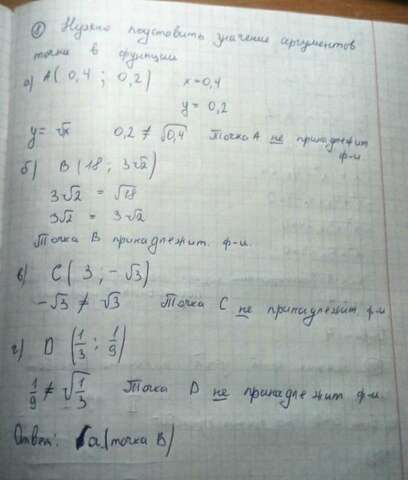 ① Нужно подставить значение аргументов
точки в функции
а) A( 0,4 ; 0,2 ) x=0,4
y = 0,2
y= √x 0,2 ≠ √0,4 Точка A не принадлежит
ф-и.
б) B (18 ; 3√2)
3√2 = √18
3√2 = 3√2
Точка B принадлежит. ф-и.
в) C( 3 ; -√3)
-√3 ≠ √3 Точка C не принадлежит. ф-и
г) D (1/3 ; 1/9)
1/9 ≠ √1/3 Точка D не принадлежит ф-и.
Ответ: а(точка B)